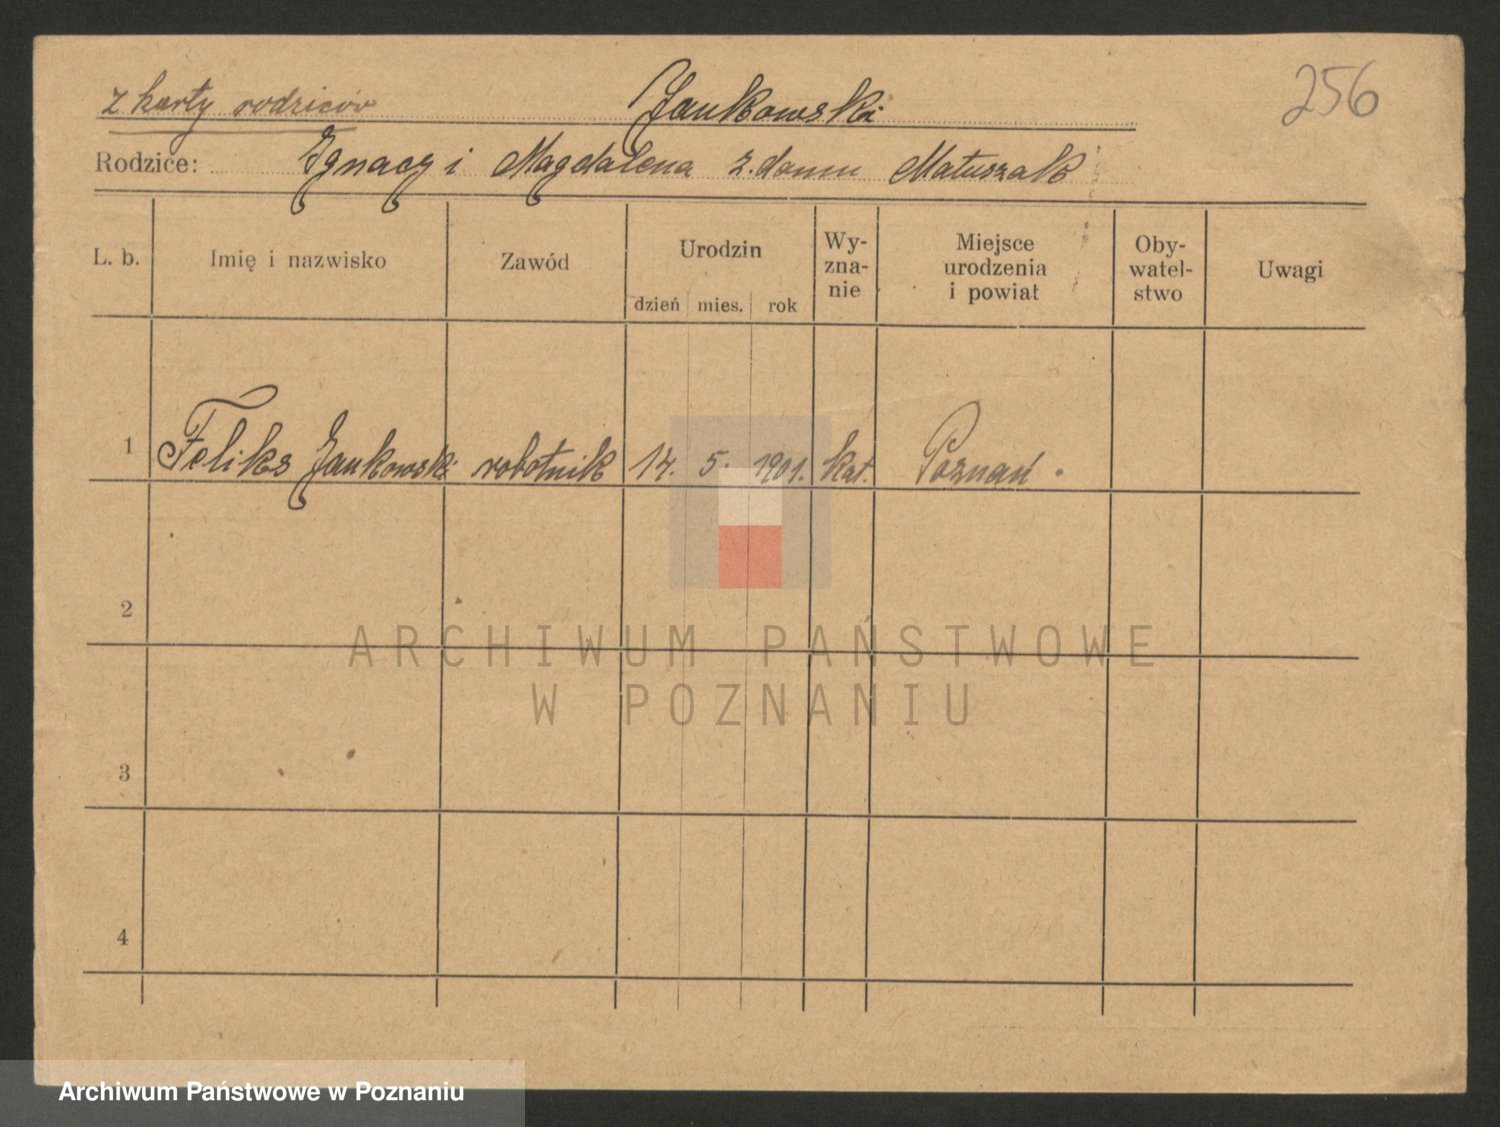 256
z karty rodziców Jankowski
Rodzice: Ignacy i Magdalena z. domu Matuszak
L. b. Imię i nazwisko Zawód Urodzin dzień mies. rok Wy-
zna-
nie Miejsce
urodzenia
i powiat Oby-
watel-
stwo Uwagi
1 Feliks Jankowski robotnik 14. 5. 1901. kat. Poznań.
2
3
4
ARCHIWUM PAŃSTWOWE
W POZNANIU
Archiwum Państwowe w Poznaniu